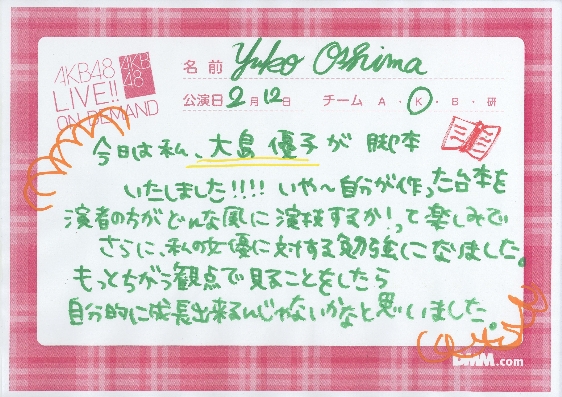 AKB48
LIVE!!
ON DEMAND
AKB
48
名前 Yuko Oshima
公演日 2月12日 チーム A・K・B・研
今日は私、大島優子が脚本
いたしました!!!! いや〜自分が作った台本を
演者の方がどんな風に演技するか!って楽しみで
さらに、私の女優に対する勉強になりました。
もっとちがう観点で見ることをしたら
自分的に成長出来るんじゃないかなと思いました。
DMM.com